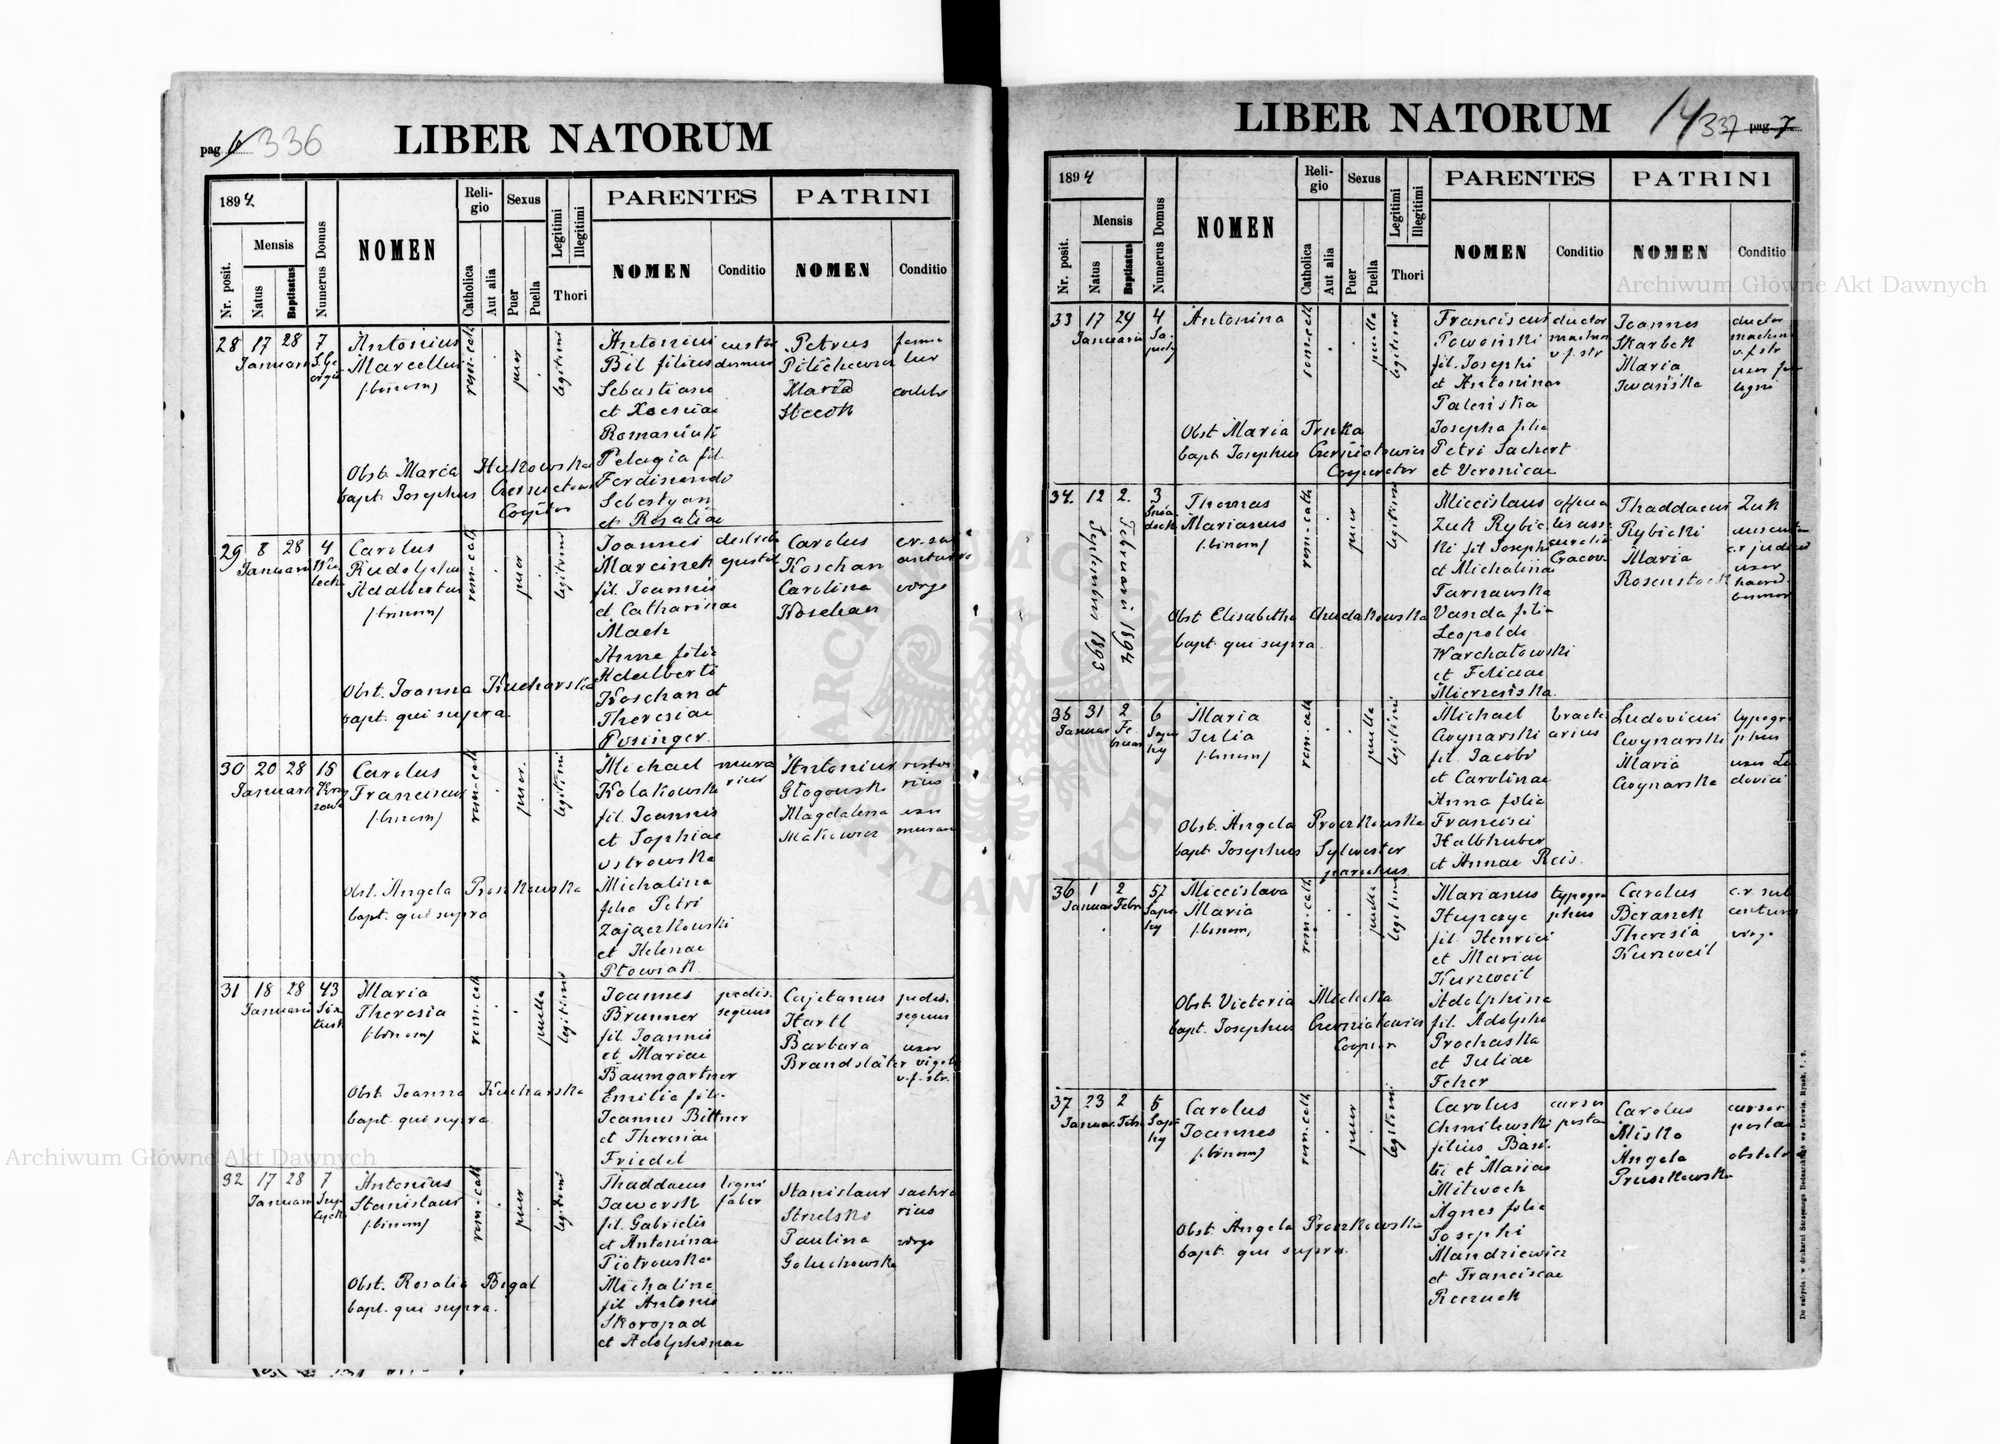 pag. 6 336
LIBER NATORUM
1894
Nr. posit.
Mensis
Natus
Baptisatus
Numerus Domus
NOMEN
Religio
Catholica
Aut alia
Sexus
Puer
Puella
Legitimi
Illegitimi
Thori
PARENTES
NOMEN
Conditio
PATRINI
NOMEN
Conditio
28 17 28 7
Januarii
Antonius
Marcellus
(binom)
rom-cath
puer
legitimi
Antonius
Bil filius
Sebastiani
et Xaveriae
Romaniuk
Pelagia fil.
Ferdinandi
Sebestyan
et Rosaliae
custos
domus
Petrus
Pilichewicz
Maria
Steck
famu
lus
coelebs
Obst. Maria Hukowska
bapt. Josephus Czerniatowicz
Cooptor
29 8 28 4
Januarii
Carolus
Rudolphus
Adalbertus
(trinom)
rom-cath
puer
legitimi
Joannes
Marcinek
fil. Joannis
et Catharinae
Mach
Anna filia
Adalberti
Koschan et
Theresiae
Posinger.
Carolus
Koschan
Carolina
Koschan
virgo
Obst. Joanna Kucharska
bapt. qui supra.
30 20 28 15
Januarii
Carolus
Franciscus
(binom)
rom-cath
puer.
legitimi
Michael
Kolakowski
fil. Joannis
et Sophiae
Ostrowska
Michalina
filia Petri
Zajaczkowski
et Helenae
Ptowiak
mura
rius
Antonius
Głogowski
Magdalena
Makowicz
uxor
murarii
Obst. Angela Proszkowska
bapt. qui supra
31 18 28 43
Januarii
Maria
Theresia
(binom)
rom-cath
puella
legitimi
Joannes
Brunner
fil. Joannis
et Mariae
Baumgartner
Emilia filia
Joannis Bittner
et Theresiae
Friedel
pedis.
sequus
Cajetanus
Hartl
Barbara
Brandstäter
pedis.
sequus
uxor
vigilis
v.f. str.
Obst. Joanna Kucharska
bapt. qui supra.
32 17 28 7
Januarii
Antonius
Stanislaus
(binom)
rom-cath
puer
legitimi
Thaddaeus
Jaworski
fil. Gabrielis
et Antoninae
Piotrowska
Michalina
fil. Antonii
Skoropad
et Adolphinae
ligni
faber
Stanislaus
Strzelsko
Paulina
Goluchowska
virgo
Obst. Rosalia Bigal
bapt. qui supra.
LIBER NATORUM
14 337 pag. 7
1894
Nr. posit.
Mensis
Natus
Baptisatus
Numerus Domus
NOMEN
Religio
Catholica
Aut alia
Sexus
Puer
Puella
Legitimi
Illegitimi
Thori
PARENTES
NOMEN
Conditio
PATRINI
NOMEN
Conditio
33 17 29 4
Januarii
Antonina
rom-cath
puella
legitimi
Franciscus
Powoiński
fil. Josephi
et Antoninae
Paleńska
Josepha filia
Petri Sachert
et Veronicae
ductor
machin
v.f. str
Joannes
Skarbek
Maria
Iwańska
ductor
machin
v.f. str
uxor fa
ligni
Obst Maria Trnka
bapt Josephus Czerniatowicz
Cooperator
34. 12 2. 3
Septembris 1893
Februarii 1894
Thomas
Marianus
(binom)
rom-cath
puer
legitimi
Miecislaus
Zuk Rybic
ki fil Josephi
et Michalinae
Tarnawska
Vanda filia
Leopoldi
Warchatowski
et Feliciae
Mierzeńska
Thaddaeus Zuk
Rybicki
Maria
Rosenstock
uxor
Obst Elisabetha Chudakowska
bapt qui supra.
35 31 2 6
Januar
Februar
Maria
Julia
(binom)
rom-cath
puella
legitimi
Michael
Cwynarski
fil. Jacobi
et Carolinae
Anna filia
Francisci
Halbhuber
et Annae Reis.
bracte
arius
Ludovicus
Cwynarski
Maria
Cwynarska
typogr
phus
uxor Lu
dovici
Obst. Angela Proszkowska
bapt Josephus Sylvester
parochus.
36 1 2 57
Januar Febr
Miecislava
Maria
(binom)
rom-cath
puella
legitimi
Marianus
Hupczyc
fil. Henrici
et Mariae
Kurzweil
Adolphina
fil. Adolphi
Prochaska
et Juliae
Feher
typogra
phus
Carolus
Beranek
Theresia
Kurzweil
c.r sub
centurio
virgo
Obst. Victoria Michaska
bapt. Josephus Czerniatowicz
Cooptor
37 23 2 5
Januar. Febr
Carolus
Joannes
(binom)
rom-cath
puer
legitimi
Carolus
Chmilewski
filius Basi
lii et Mariae
Mitwoch
Agnes filia
Josephi
Mandziewicz
et Franciscae
Reczuch
cursor
posta
Carolus
Miska
Angela
Pruszkowska
cursor
postae
obstetr
Obst. Angela Proszkowska
bapt. qui supra.
Do nabycia w drukarni Szczęsnego Bednarskiego we Lwowie, Rynek, l. 9.
Archiwum Główne Akt Dawnych
Archiwum Główne Akt Dawnych
ARCHIWUM GŁÓWNE AKT DAWNYCH